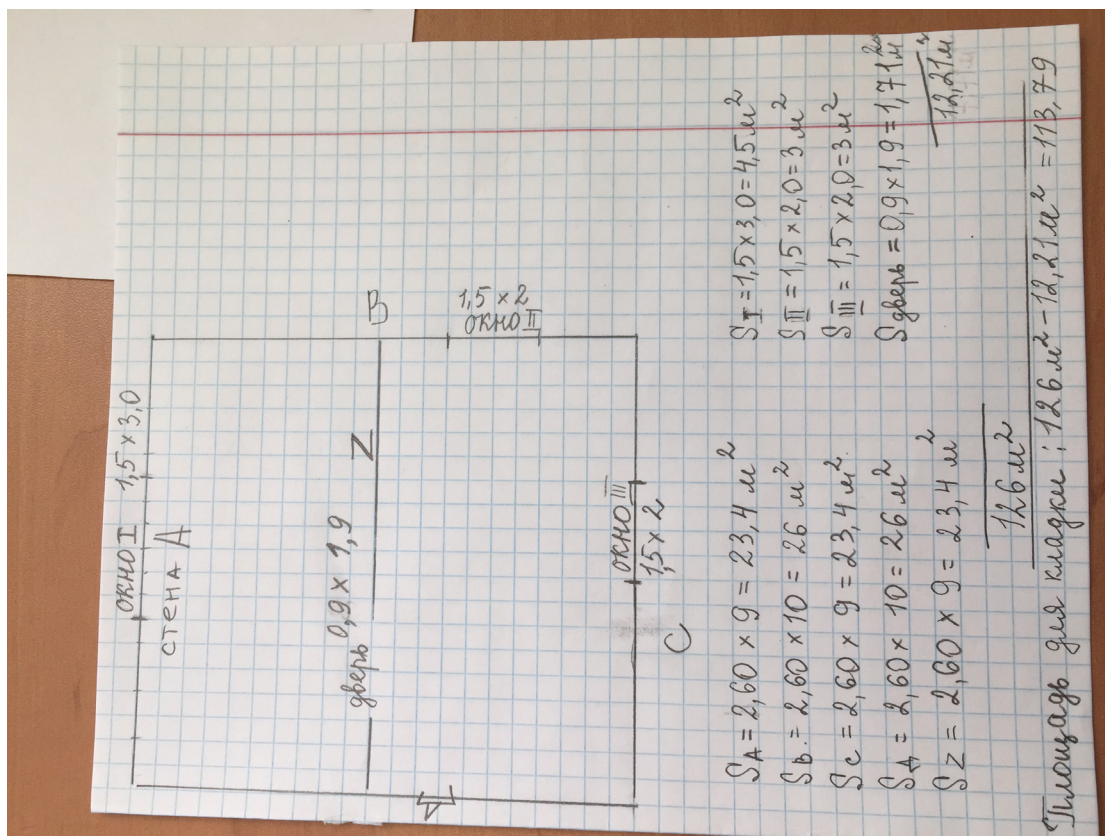 окно I 1,5 × 3,0
стена А
дверь 0,9 × 1,9
Z
В
1,5 × 2
окно II
окно III
1,5 × 2
С
Д
SА = 2,60 × 9 = 23,4 м²
Sв. = 2,60 × 10 = 26 м²
Sс = 2,60 × 9 = 23,4 м²
SД = 2,60 × 10 = 26 м²
Sz = 2,60 × 9 = 23,4 м²
126 м²
SI = 1,5 × 3,0 = 4,5 м²
SII = 1,5 × 2,0 = 3 м²
SIII = 1,5 × 2,0 = 3 м²
Sдверь = 0,9 × 1,9 = 1,71 м²
12,21 м²
Площадь для кладки : 126 м² - 12,21 м² = 113,79